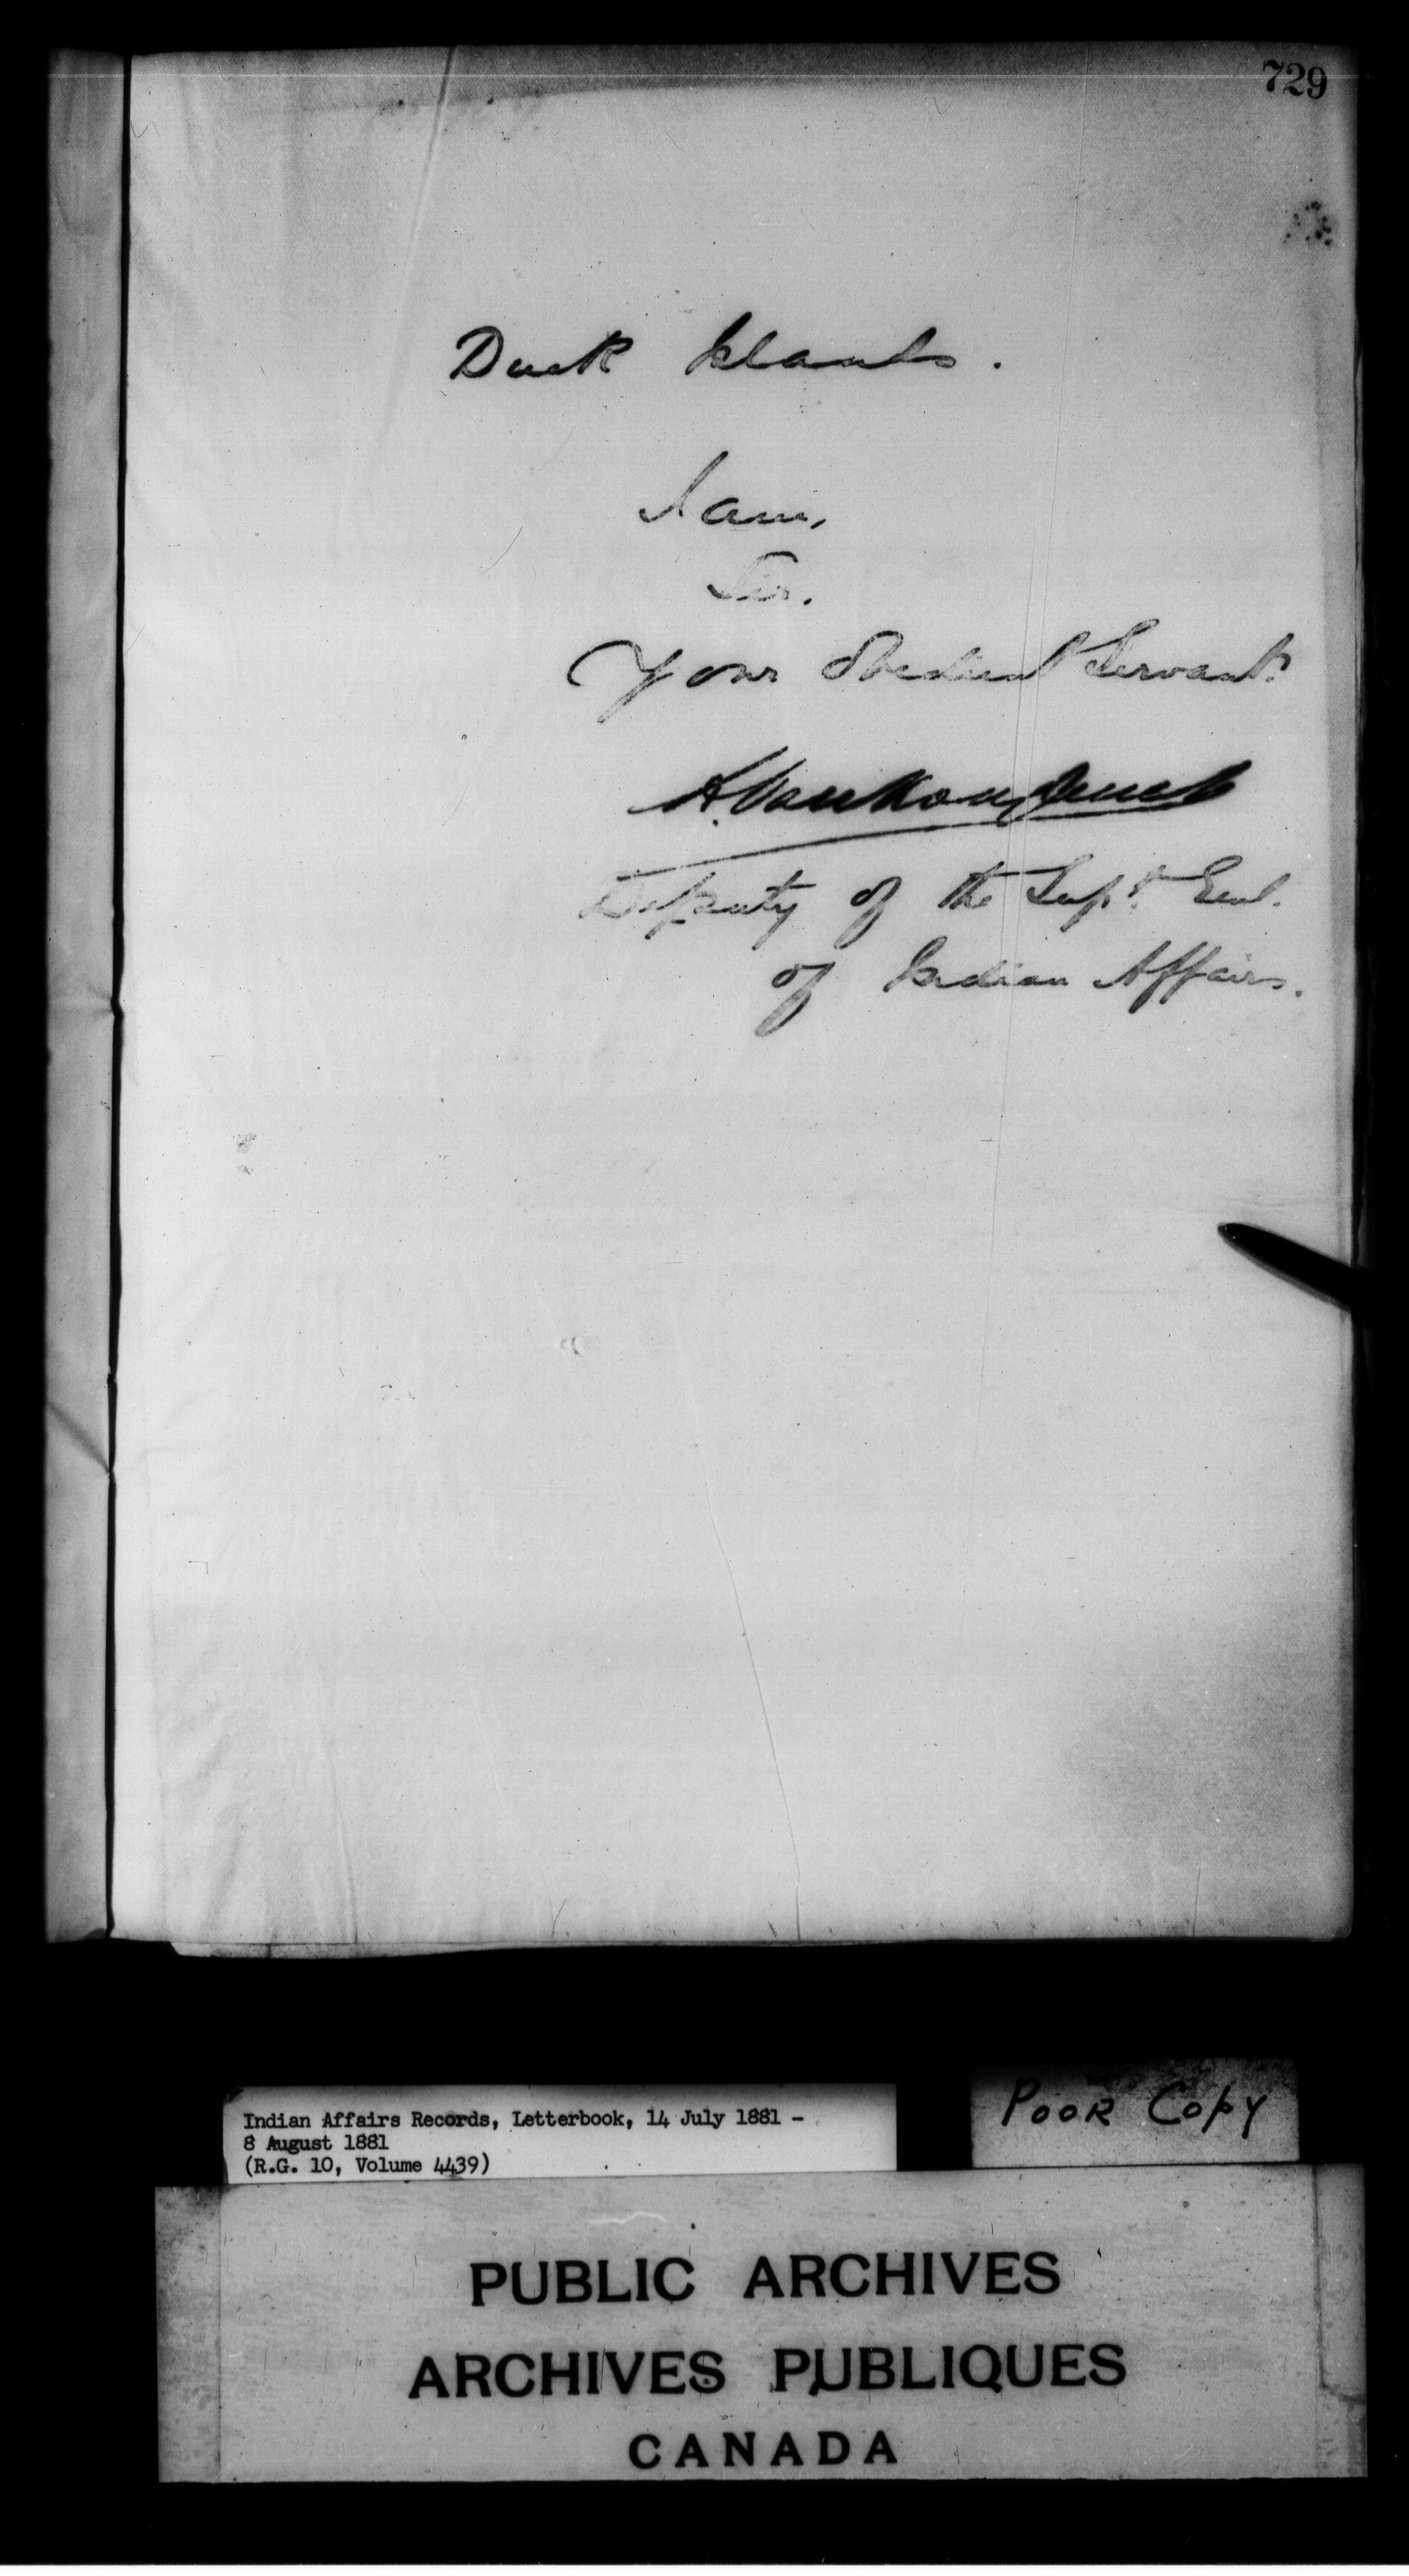 729
Duck Islands.
I am,
Sir,
Your Obedient Servant.
L. VanKoughnet
Deputy of the Supt. Genl.
of Indian Affairs.
Indian Affairs Records, Letterbook, 14 July 1881 -
8 August 1881
(R.G. 10, Volume 4439)
POOR COPY
PUBLIC ARCHIVES
ARCHIVES PUBLIQUES
CANADA